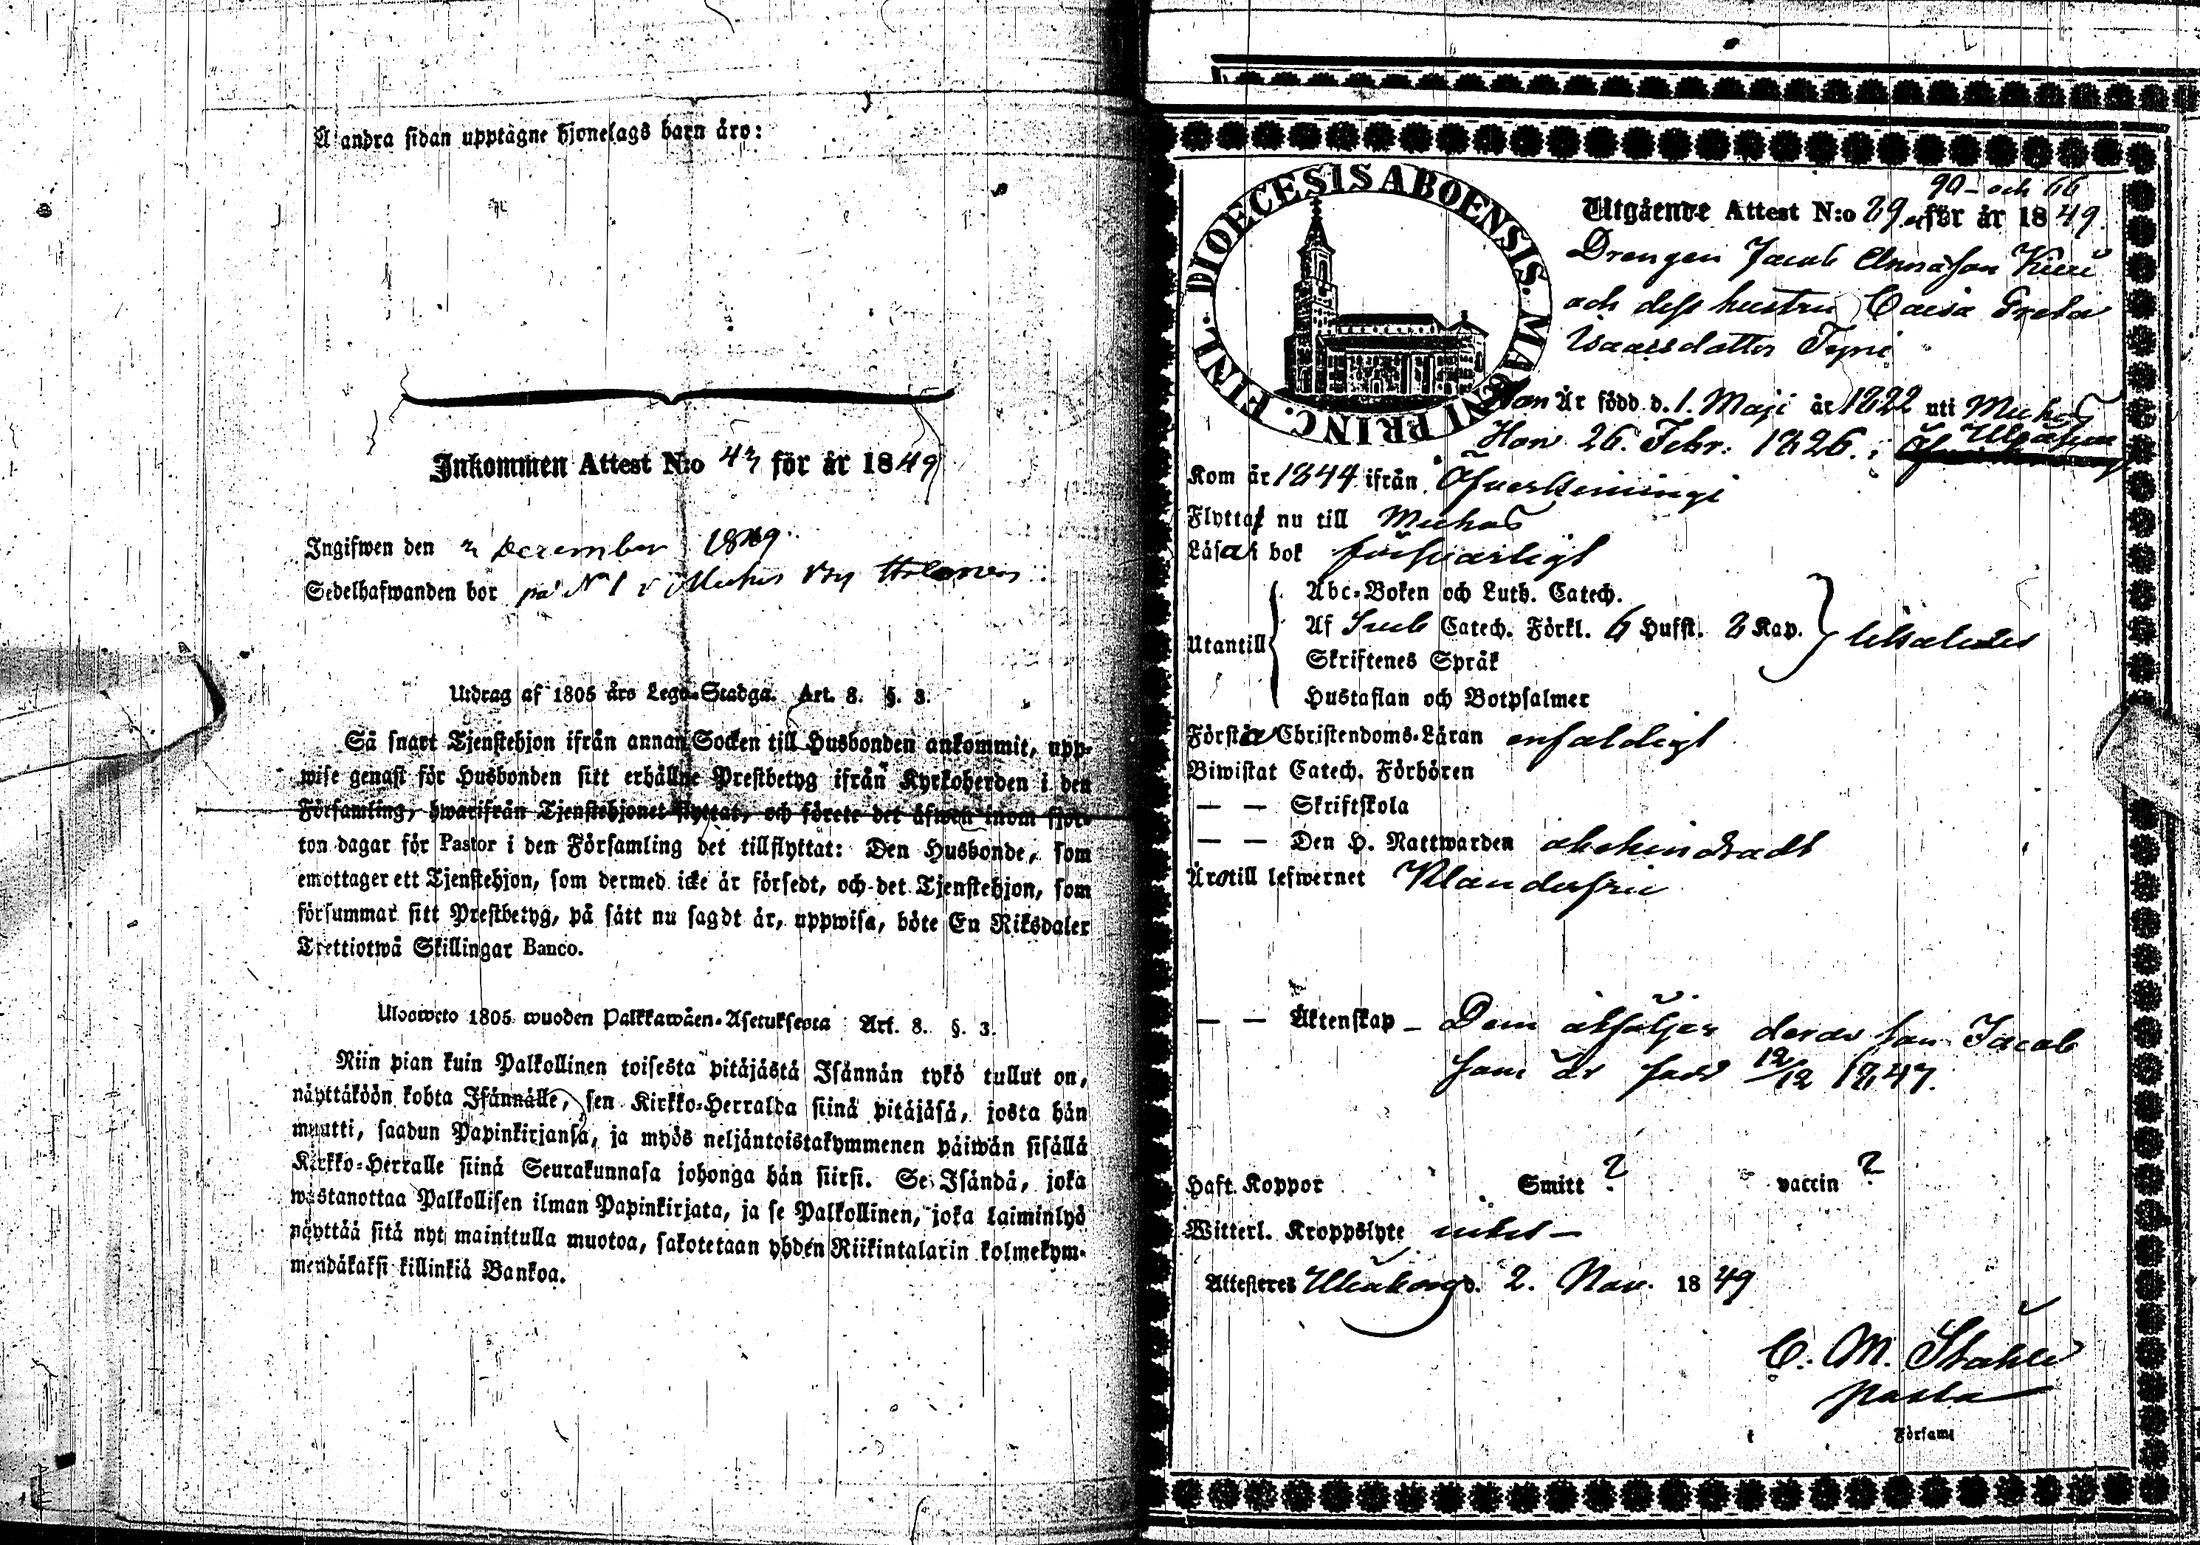 Å andra sidan upptagne hjonelags barn äro:
Inkommen Attest N:o 43 för år 1849
Ingifwen den 2 December 1849.
Sedelhafwanden bor på N 1 i Muhos by
Utdrag af 1805 års Lego-Stadga. Art. 8. §. 3.
Så snart Tjenstehjon ifrån annan Socken till Husbonden ankommit, upp-
wise genast för Husbonden sitt erhållne Prestbetyg ifrån Kyrkoherden i den
Församling, hwarifrån Tjenstehjonet flyttat, och förete det äfwen inom fjor-
ton dagar för Pastor i den Församling det tillflyttat: Den Husbonde, som
emottager ett Tjenstehjon, som dermed icke är försedt, och det Tjenstehjon, som
försummar sitt Prestbetyg, på sätt nu sagdt är, uppwisa, böte En Riksdaler
Trettiotwå Skillingar Banco.
Ulosweto 1805 wuoden Palkkawäen-Asetuksesta Art. 8. §. 3.
Niin pian kuin Palkollinen toisesta pitäjästä Isännän tykö tullut on,
näyttäköön kohta Isännälle, sen Kirkko-Herralda siinä pitäjäsä, josta hän
muutti, saadun Papinkirjansa, ja myös neljäntoistakymmenen päiwän sisällä
Kirkko-Herralle siinä Seurakunnasa johonga hän siirsi. Se Isändä, joka
wastanottaa Palkollisen ilman Papinkirjata, ja se Palkollinen, joka laiminlyö
näyttää sitä nyt mainitulla muotoa, sakotetaan yhden Riikintalarin kolmekym-
mendäkaksi killinkiä Bankoa.
DIOECESIS ABOENSIS. MAGNI PRINC. FINL.
90 och 66
Utgående Attest N:o 89 för år 1849.
Drengen Jacob
och dess hustru Caisa Greta
Isaacsdotter
Han Är född d. 1. Maji år 1822 uti Muhos
Hon 26. Febr. 1826. i
Kom år 1844 ifrån Öfverkiminigi
Flytta nu till Muhos
Läsa i bok försvarligt
Abc-Boken och Luth. Catech.
Utantill Af Sveb Catech. Förkl. 6 Hufst. 2 Kap.
Skriftenes Språk
Hustaflan och Botpsalmer
Förstå Christendoms-Läran enfaldigt
Biwistat Catech. Förhören
— — Skriftskola
— — Den H. Nattwarden obehindradt
Äro till lefwernet Klanderfrie
— — Äktenskap – Dem åtföljer deras son Jacob
som är född 12/12 1847.
Haft Koppor Smitt ? vaccin ?
Witterl. Kroppslyte intet —
Attesteres Uleåborg d. 2. Nov. 1849
C. M.
Församl